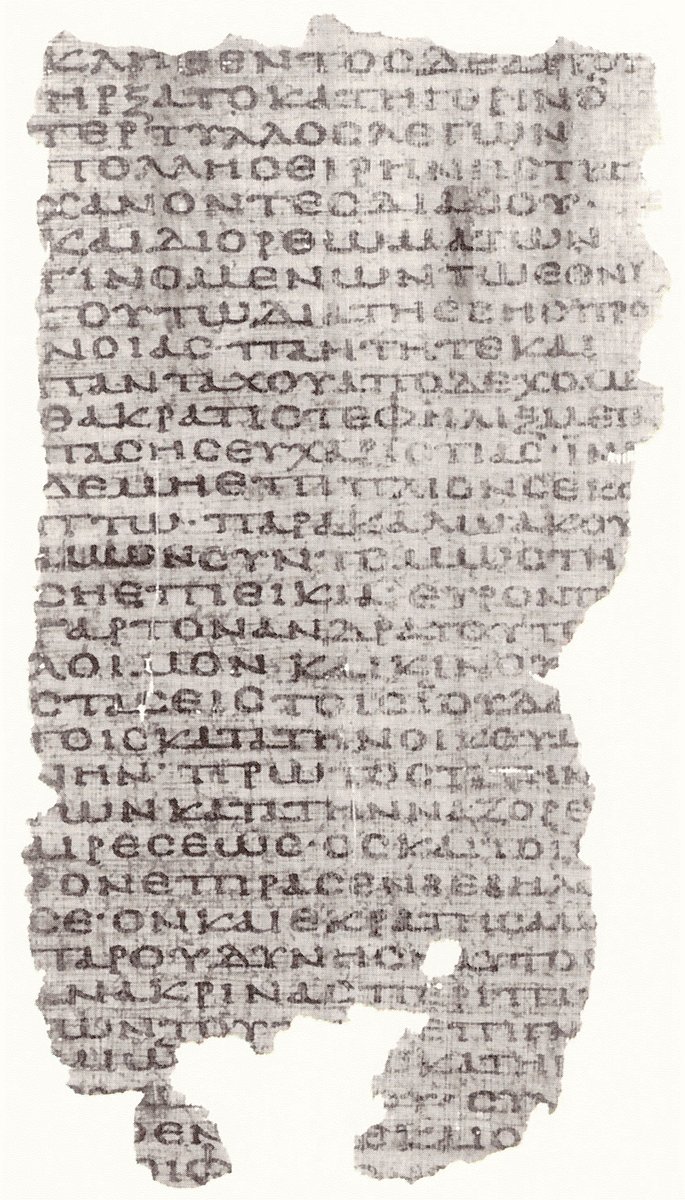 ΚΛΗΘΕΝΤΟCΔΕΑΥΤΟΥ
ΗΡΞΑΤΟΚΑΤΗΓΟΡΙΝΟ
ΤΕΡΤΥΛΛΟCΛΕΓΩΝ
ΠΟΛΛΗCΘΙΡΗΝΗC
ΧΑΝΟΝΤΕCΔΙΑCΟΥ·
ΚΑΙΔΙΟΡΘΩΜΑΤΩΝ
ΓΙΝΟΜΕΝΩΝΤΩΕΘΝΙ
ΤΟΥΤΩΔΙΑΤΗC ΠΡΟ
ΝΟΙΑC·ΠΑΝΤΗΤΕΚΑΙ
ΠΑΝΤΑΧΟΥΑΠΟΔΕΧΟΜΕ
ΘΑΚΡΑΤΙCΤΕΦΗΛΙΞΜΕΤ
ΠΑCΗCΕΥΧΑΡΙCΤΙΑC·ΪΝ
ΔΕΜΗΕΠΙΠΛΙΟΝCΕ
ΠΤΩ·ΠΑΡΑΚΑΛΩΑΚΟΥ
ΗΜΩΝCΥΝΤΟΜΩCΤΗ
CΗΕΠΙΕΙΚΙΑ· ΕΥΡΟΝΤ
ΓΑΡΤΟΝΑΝΔΡΑΤΟΥΤ
ΛΟΙΜΟΝ ΚΑΙΚΙΝΟΥ
CΤΑCΕΙCΤΟΙCΪΟΥΔΑ
ΟΙCΚΑΤΑΤΗΝΟΙΚΟΥΜ
ΝΗΝ·ΠΡΩΤΟCΤΑΤΗΝ
ΤΩΝΚΑΤΑΤΗΝΝΑΖΟΡΕ
ΑΙΡΕCΕΩC·ΟCΚΑΙΤΟΙ
ΡΟΝΕΠΙΡΑCΕΝΒΕΒΗΛΩ
CΕ·ΟΝΚΑΙΕΚΡΑΤΗCΑΜ
ΠΑΡΟΥΔΥΝΗCΗ ΑΥΤΟC
ΑΝΑΚΡΙΝΑCΠΕΡΙΠΑΝ
ΤΩΝΤΟΥΤ
ΚΑΤΗ
CΥΝ
ΘΕΝ